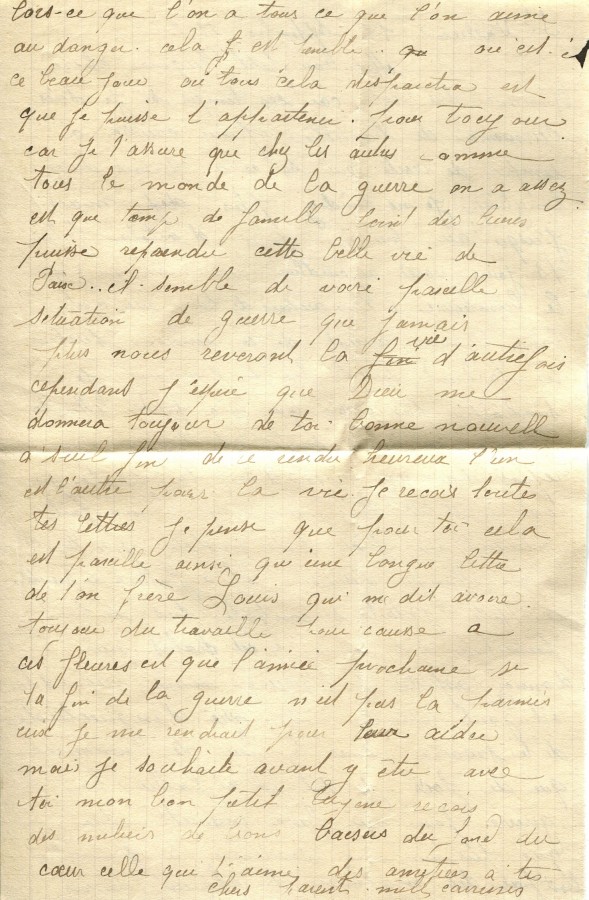 lors-ce que l'on a tous ce que l'on aime
au danger. cela est terrible. où est-il
ce beau jour où tous cela disparaitra est
que je puisse t'appartenir. pour toujour
car je t'assure que chez les autres comme
tous le monde de la guerre on a assez
est que temp de famille des
puisse reprendre cette belle vie de
Paix.. il semble de voire pareille
situation de guerre que jamais
plus nous reveront la vie d'autrefois
cependant j'espère que Dieu me
donnera toujour de toi bonne nouvell
a seul fin de ce rendre heureux l'un
est l'autre pour la vie. Je recois toutes
tes lettres je pense que pour toi cela
est pareille ainsi qu'une longue lettre
de t'on frère Louis qui me dit avoire
toujour du travaille pour cause a
ces fleures est que l'année prochaine si
la fin de la guerre n'est pas la parmis
eux je me rendrait pour leur aider
mais je souhaite avant y être avec
toi mon bon petit Eugène recois
des milliers de bons baesers du fond du
cœur celle qui t'aime des amitiées a tes
chers parent mill carresses